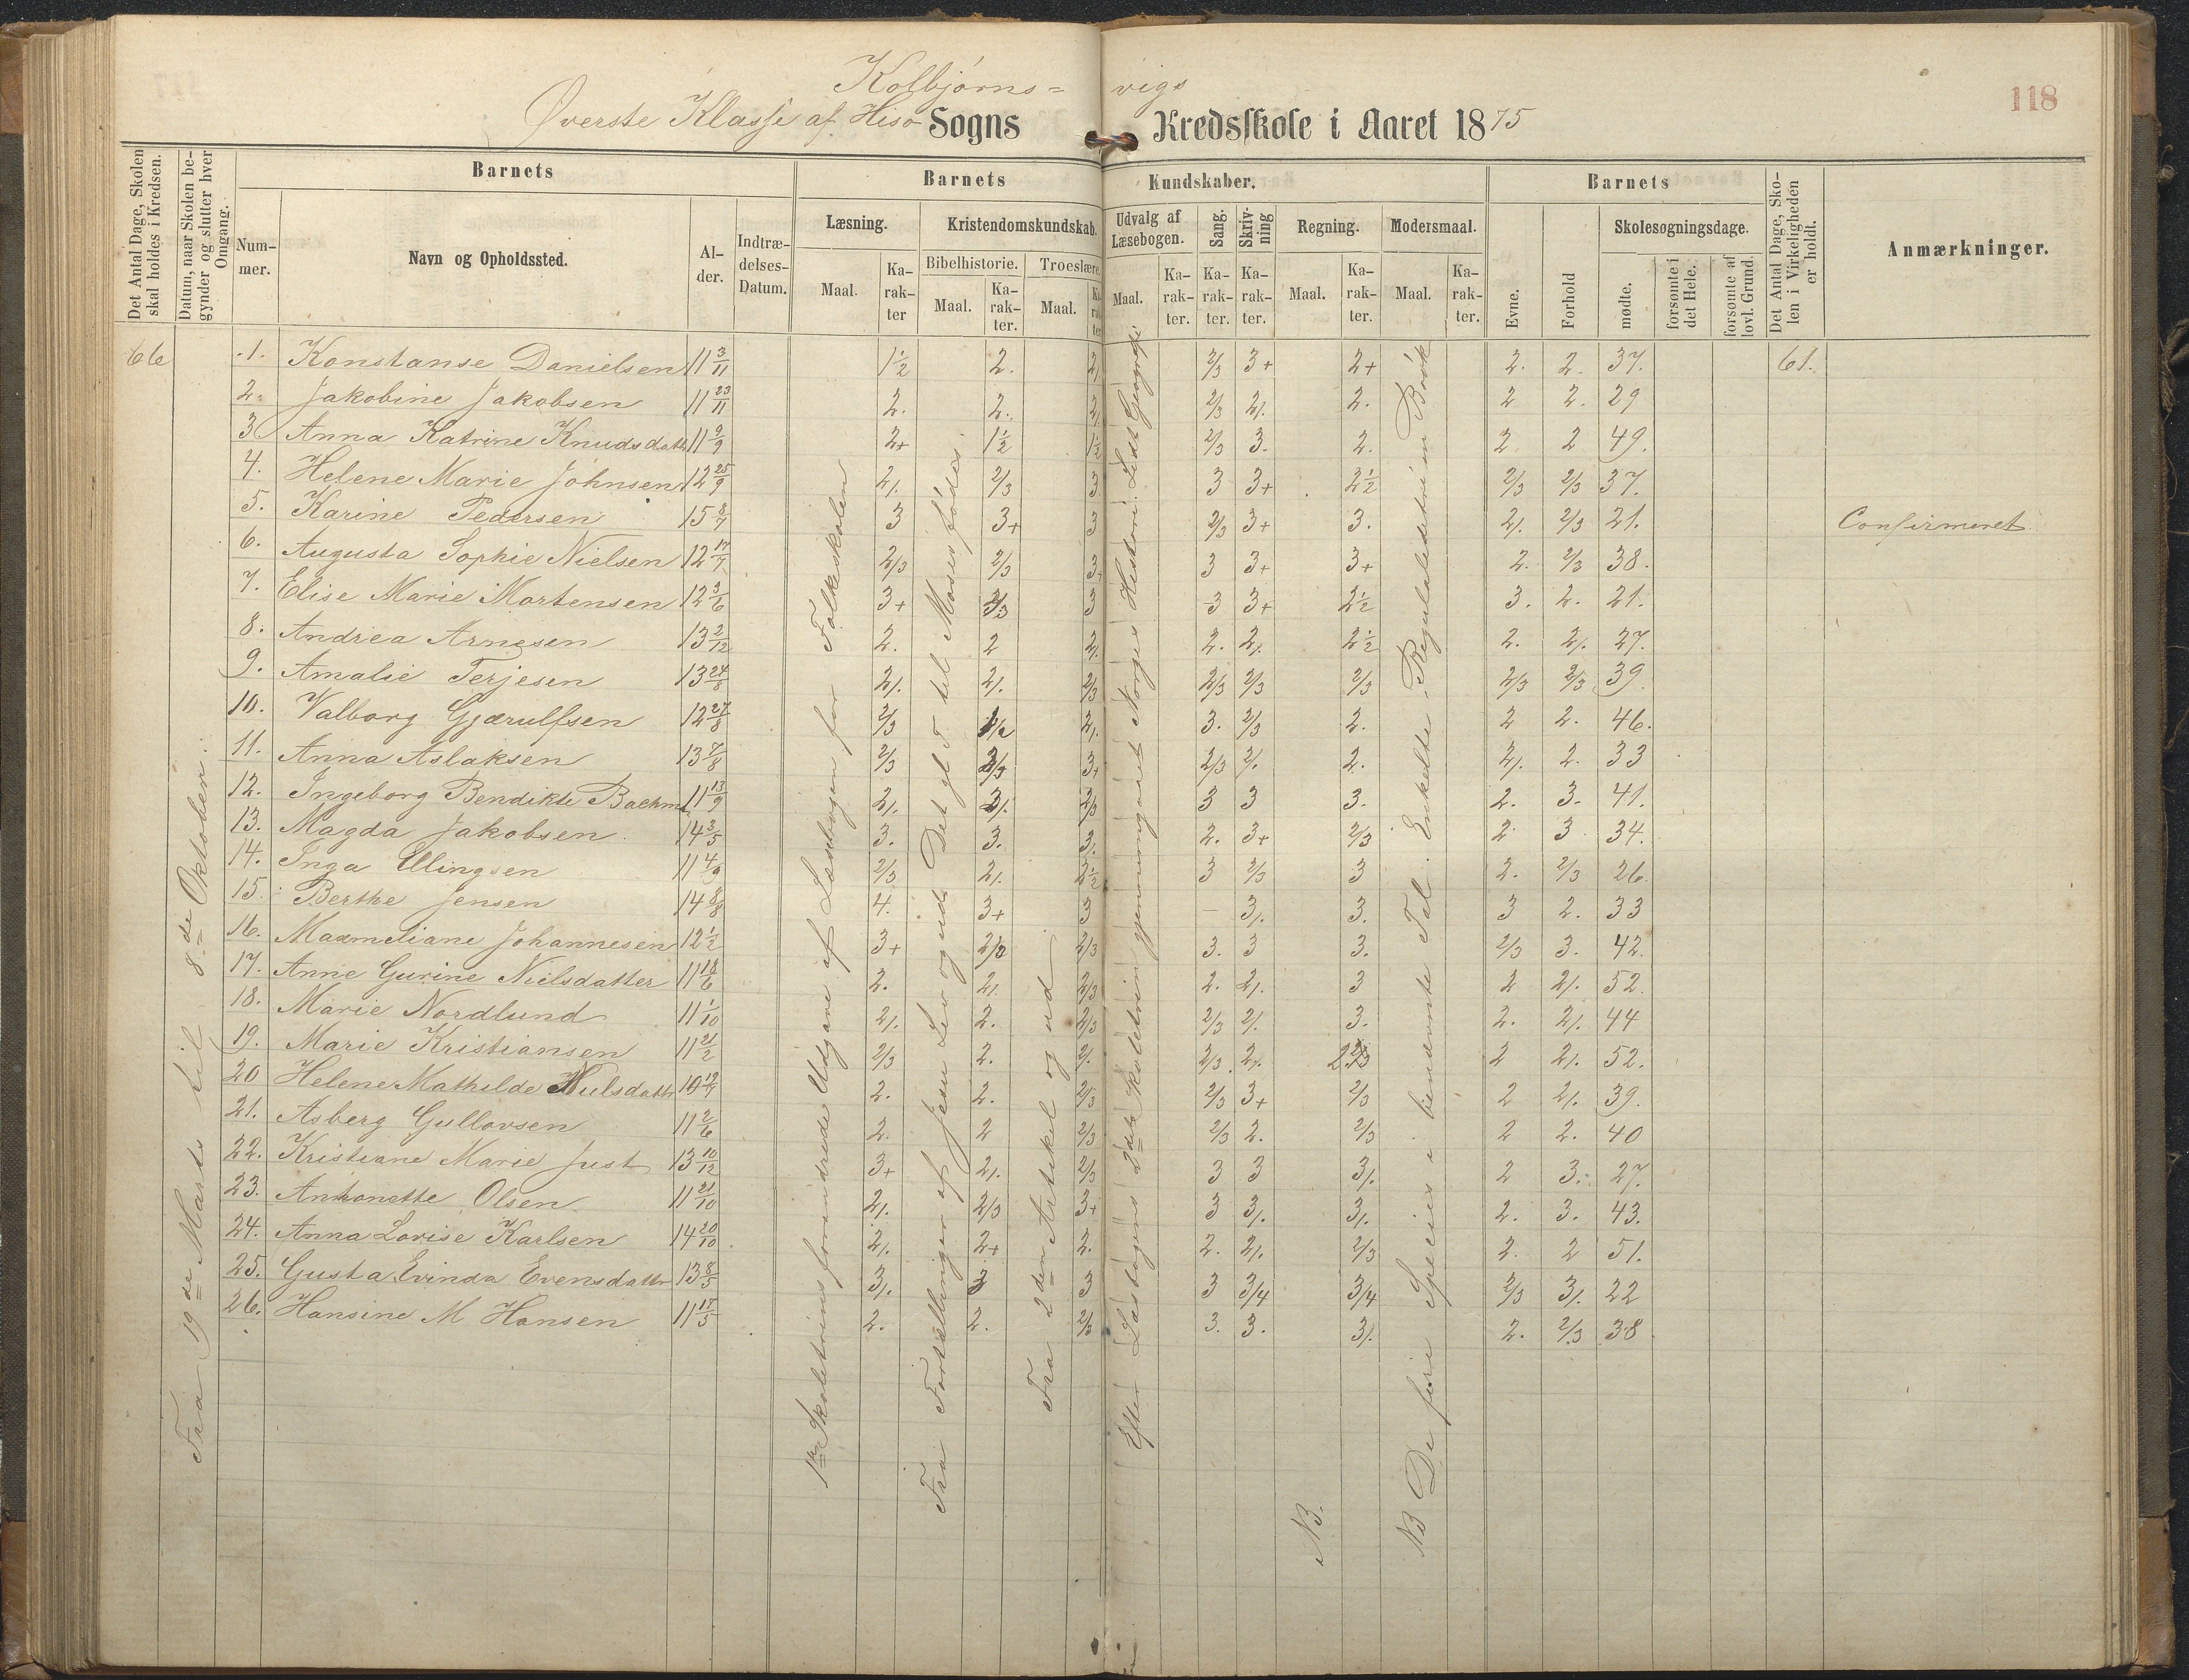 118
Kolbjørns= vigs
Øverste Klasse af Hisø Sogns Kredsskole i Aaret 1875
Det Antal Dage, Skolen skal holdes i Kredsen.
Datum, naar Skolen begynder og slutter hver Omgang.
Barnets
Nummer.
Navn og Opholdssted.
Alder.
Indtrædelses-Datum.
Barnets Kundskaber.
Læsning.
Maal.
Karakter
Kristendomskundskab.
Bibelhistorie.
Maal.
Karakter.
Troeslære.
Maal.
Karakter
Udvalg af Læsebogen.
Maal.
Karakter.
Sang.
Karakter.
Skrivning
Karakter.
Regning.
Maal.
Karakter.
Modersmaal.
Maal.
Karakter.
Barnets
Evne.
Forhold
Skolesøgningsdage.
mødte.
forsømte i det Hele.
forsømte af lovl. Grund.
Det Antal Dage, Skolen i Virkeligheden er holdt.
Anmærkninger.
66 1. Konstanse Danielsen 11 3/11 1½ 2. 2/. 2/3 3+ 2+ 2. 2. 37. 61.
2. Jakobine Jakobsen 11 23/11 2. 2. 2/. 2/3 2/. 2. 2 2. 29
3 Anna Katrine Knudsdatt 11 9/9 2+ 1½ 1½ 2/3 3. 2. 2. 2 49.
4. Helene Marie Johnsen 12 25/9 2/. 2/3 3 3 3+ 2½ 2/3 2/3 37.
5. Karine Pedersen 15 8/7 3 3+ 3 2/3 3+ 3. 2/. 2/3 21. Confirmeret
6. Augusta Sophie Nielsen 12 17/7 2/3 2/3 3+ 3 3+ 3+ 2. 2/3 38.
7. Elise Marie Mortensen 12 3/6 3+ 3 3 3+ 2½ 3. 2. 21.
8. Andrea Arnesen 13 2/12 2. 2 2/. 2. 2/. 2½ 2. 2/. 27.
9. Amalie Terjesen 13 24/8 2/. 2/. 2/3 2/3 2/3 2/3 2/3 2/3 39.
10. Valborg Gjærulfsen 12 27/8 2/3 1½ 2/. 3. 2/3 2. 2 2. 46.
11. Anna Aslaksen 13 7/8 2/3 2/3 3+ 2/3 2/. 2. 2/. 2. 33
12. Ingeborg Bendikte Backm 11 13/9 2/. 2/. 2/3 3 3 3. 2. 3. 41.
13. Magda Jakobsen 14 3/5 3. 3. 3/. 2. 3+ 2/3 2. 3. 34.
14. Inga Ellingsen 11 4/9 2/3 2/. 2½ 3 2/3 3 2. 2/3 26.
15. Berthe Jensen 14 8/8 4. 3+ 3 – 3/. 3. 3 2. 33
16. Maxmeliane Johannesen 12 ½ 3+ 2/3 2/3 3. 3 3. 2/3 3. 42.
17. Anne Gurine Nielsdatter 11 18/6 2. 2/. 2/3 2. 2/. 3 2 2/. 52.
18. Marie Nordlund 11 1/10 2/. 2. 2/3 2/3 2/. 3. 2. 2/. 44
19. Marie Kristiansen 11 21/2 2/3 2. 2/. 2/3 2/. 2/3 2 2/. 52.
20 Helene Mathilde Nielsdattr 10 12/7 2. 2. 2/3 2/3 3+ 2/3 2 2/. 39.
21. Asberg Gullovsen 11 2/6 2. 2 2/3 2/3 2. 2/3 2 2. 40
22. Kristiane Marie Just 13 10/12 3+ 2/. 2/3 3 3 3/. 2 3. 27.
23. Antonette Olsen 11 21/10 2/. 2/3 3+ 3 3/. 3/. 2. 3. 43.
24. Anna Lovise Karlsen 14 20/10 2/. 2+ 2. 2. 2/. 2/3 2. 2 51.
25. Gusta Evinda Evensdattr 13 8/5 3/. 3 3 3 3/4 3/4 2/3 3/. 22
26. Hansine M Hansen 11 17/5 2. 2. 2/3 3. 3. 3/. 2. 2/3 38
Fra 19de Marts til 8de Oktober.
1ste Skoletrins forandrede Udgave af Læsebogen for Folkeskolen
Fra Fortællinger af Jesu Lev og ud. Det gl. T. til Moses fødes.
Fra 2den Artikel og ud
Efter Læsebogens 2det Skoletrin gjennemgaaet Norges Historie. Lidt Geografi
NB.
NB De fire Species i benævnte Tal. Enkelte Regulaledetri m Brøk